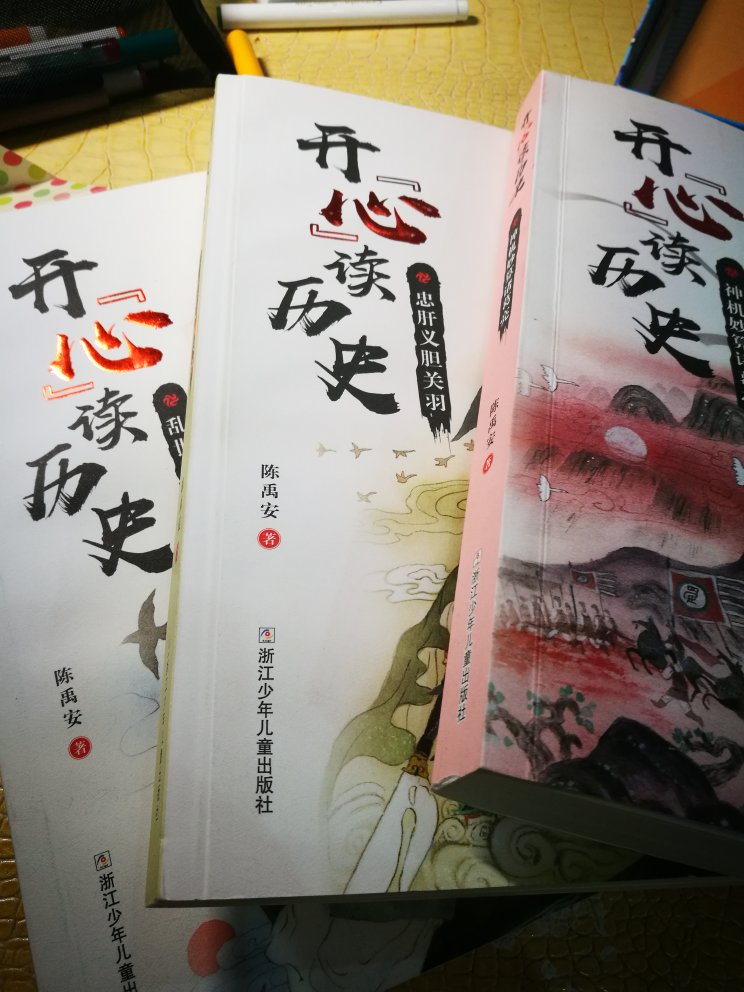 开
『心』
读
历
史
乱
陈禹安 著
浙江少年儿童出
开
『心』
读
历
史
忠肝义胆关羽
陈禹安 著
浙江少年儿童出版社
开心读历史
陈禹安 著
浙江少年儿童出版社
开
『心』
读
历
史
神机妙算